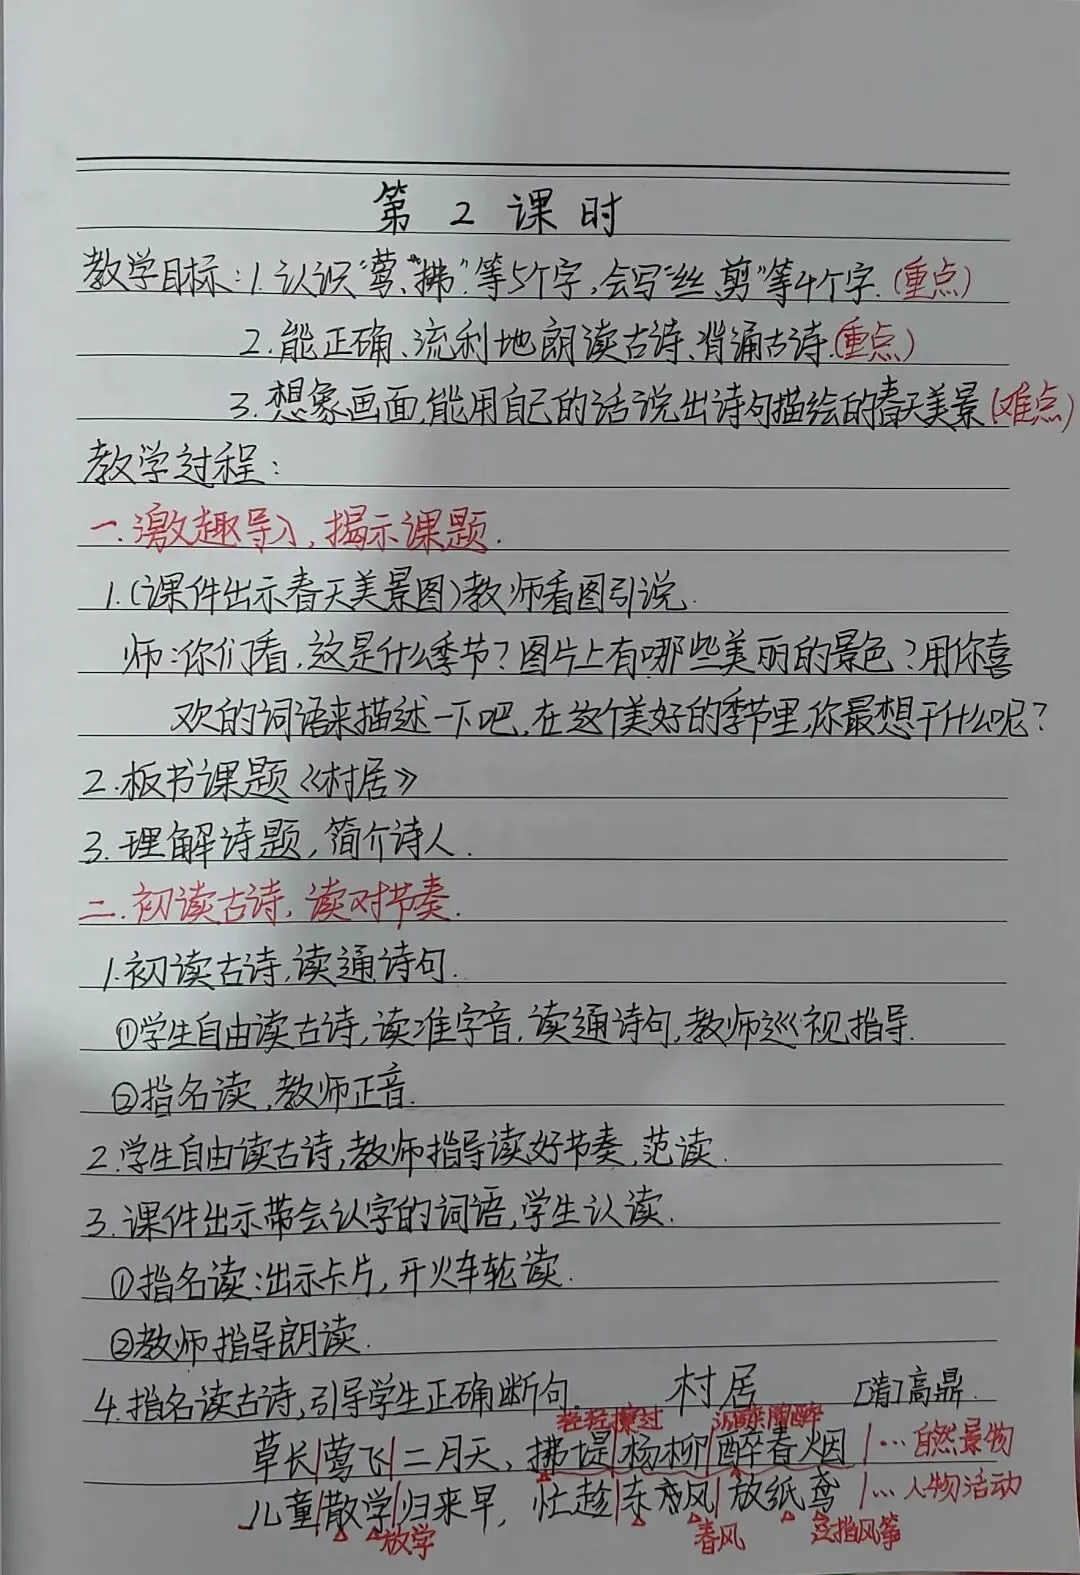 第 2 课 时
教学目标:1.认识“莺、“拂”等5个字,会写“丝、剪”等4个字.(重点)
2.能正确、流利地朗读古诗、背诵古诗.(重点)
3.想象画面,能用自己的话说出诗句描绘的春天美景(难点)
教学过程:
一.激趣导入,揭示课题.
1.(课件出示春天美景图)教师看图引说.
师:你们看,这是什么季节?图片上有哪些美丽的景色?用你喜
欢的词语来描述一下吧,在这个美好的季节里,你最想干什么呢?
2.板书课题《村居》
3.理解诗题,简介诗人.
二.初读古诗,读对节奏.
1.初读古诗,读通诗句.
①学生自由读古诗,读准字音,读通诗句,教师巡视指导.
②指名读,教师正音.
2.学生自由读古诗,教师指导读好节奏,范读.
3.课件出示带会认字的词语,学生认读.
①指名读:出示卡片,开火车轮读.
②教师指导朗读.
4.指名读古诗,引导学生正确断句. 村居 [清]高鼎.
轻轻擦过 陶醉
草长|莺飞|二月天,拂堤|杨柳|醉春烟 |…自然景物
儿童|散学|归来早,忙趁|东风|放纸鸢 |…人物活动
放学 春风 这指风筝